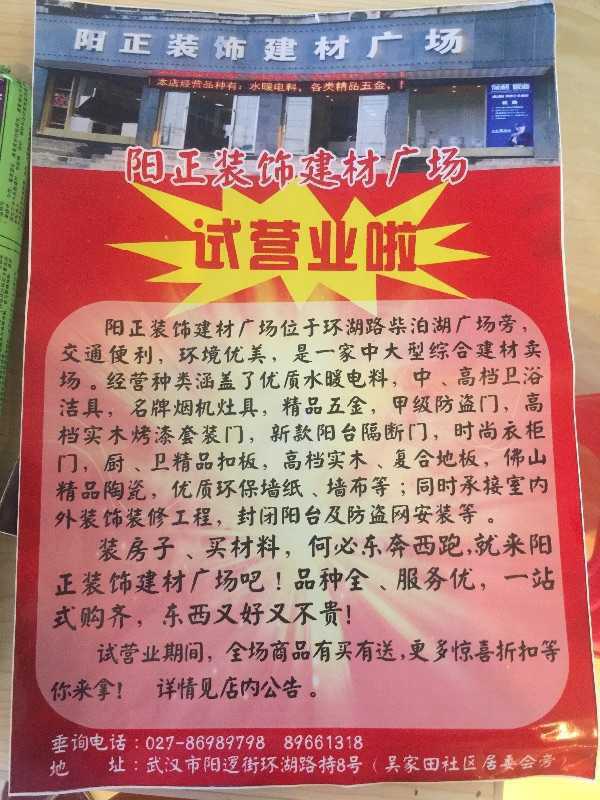 阳正装饰建材广场
本店经营品种有：水暖电料，各类精品五金，
阳正装饰建材广场
试营业啦
阳正装饰建材广场位于环湖路柴泊湖广场旁，
交通便利，环境优美，是一家中大型综合建材卖
场。经营种类涵盖了优质水暖电料，中、高档卫浴
洁具，名牌烟机灶具，精品五金，甲级防盗门，高
档实木烤漆套装门，新款阳台隔断门，时尚衣柜
门，厨、卫精品扣板，高档实木、复合地板，佛山
精品陶瓷，优质环保墙纸、墙布等；同时承接室内
外装饰装修工程，封闭阳台及防盗网安装等。
装房子、买材料，何必东奔西跑，就来阳
正装饰建材广场吧！品种全、服务优，一站
式购齐，东西又好又不贵！
试营业期间，全场商品有买有送，更多惊喜折扣等
你来拿！ 详情见店内公告。
垂询电话：027-86989798 89661318
地 址：武汉市阳逻街环湖路特8号（吴家田社区居委会旁）